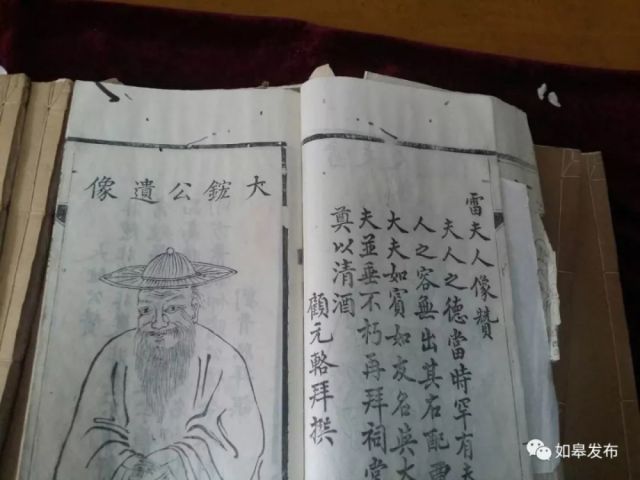 雷夫人像贊
夫人之德當時罕有夫
人之容無出其右配
大夫如賓如友名與大
夫並垂不朽再拜祠堂
奠以清酒
顧元輅拜撰
大鋐公遺像
如皋发布